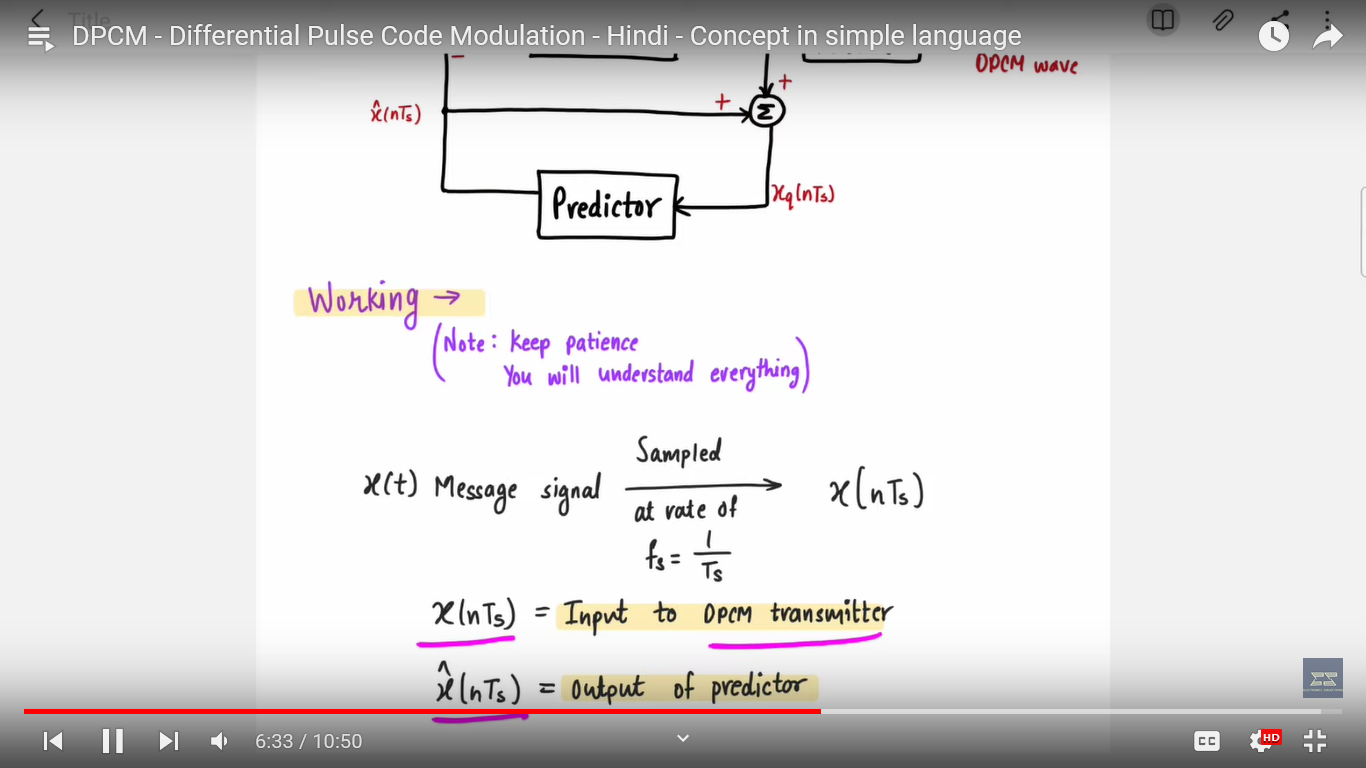 Title
DPCM - Differential Pulse Code Modulation - Hindi - Concept in simple language
−
+
DPCM wave
x̂(nTs)
+
Σ
Predictor
xq(nTs)
Working →
(Note: Keep patience
You will understand everything)
x(t) Message signal
Sampled
at rate of
fs = 1/Ts
x(nTs)
x(nTs) = Input to DPCM transmitter
x̂(nTs) = Output of predictor
6:33 / 10:50
CC
HD